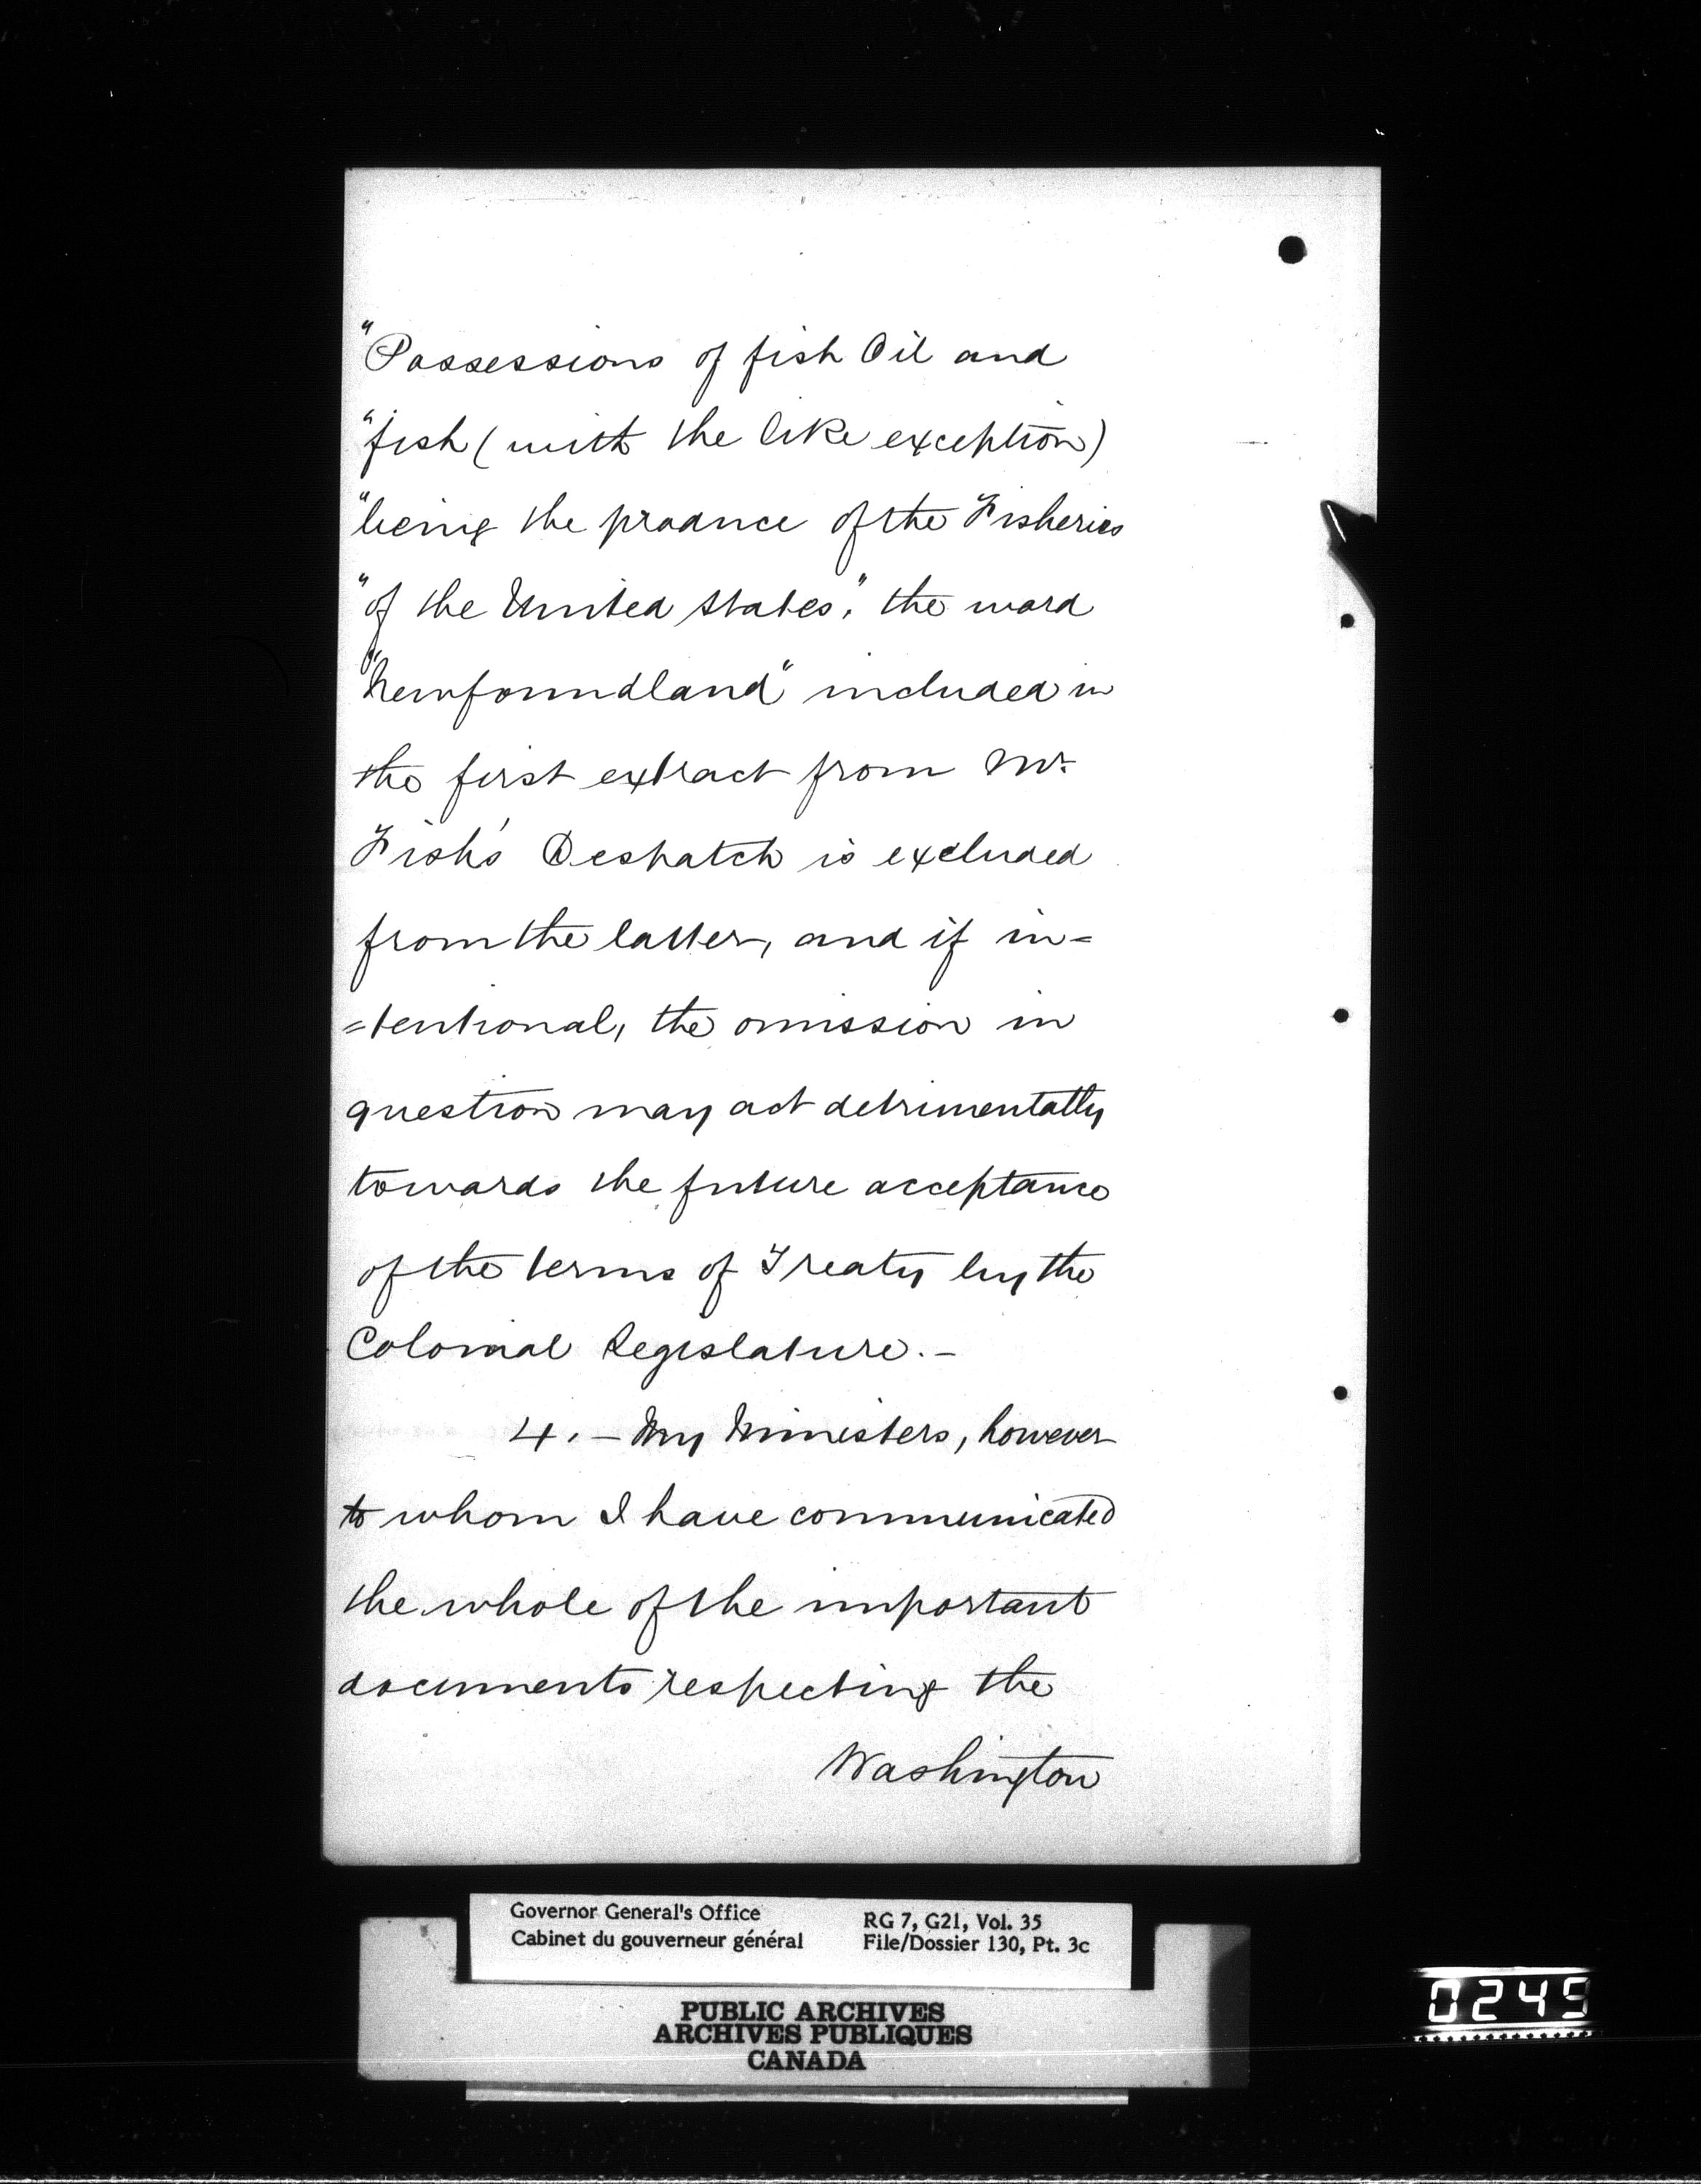 "Possessions of fish Oil and
"fish (with the like exception)
"being the produce of the Fisheries
"of the United States," the word
"Newfoundland" included in
the first extract from Mr.
Fish's Despatch is excluded
from the latter, and if in=
=tentional, the omission in
question may act detrimentally
towards the future acceptance
of the terms of Treaty by the
Colonial Legislature.—
4.— My Ministers, however
to whom I have communicated
the whole of the important
documents respecting the
Washington
Governor General's Office
Cabinet du gouverneur général
RG 7, G21, Vol. 35
File/Dossier 130, Pt. 3c
PUBLIC ARCHIVES
ARCHIVES PUBLIQUES
CANADA
0245